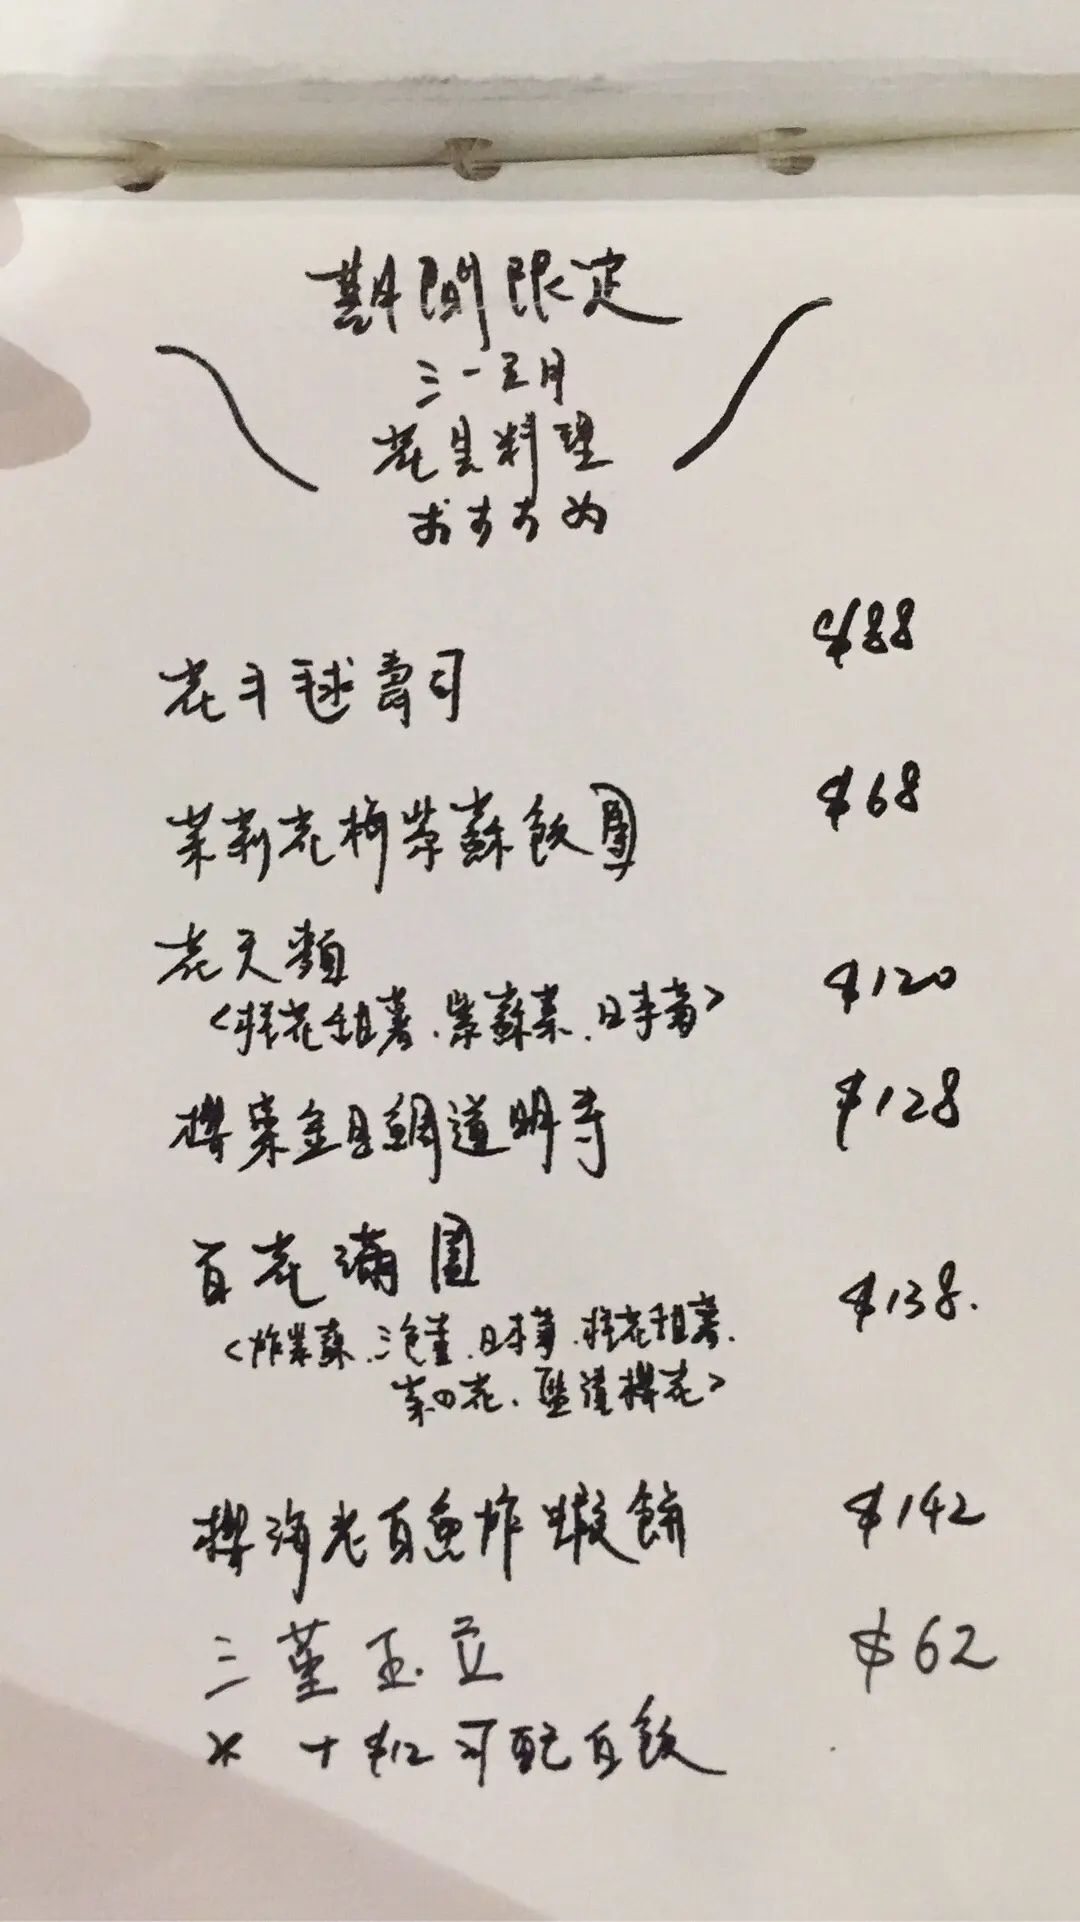 期間限定
三-五月
花見料理
おすすめ
花手毬壽司 $88
茉莉花梅紫蘇飯團 $68
花天類 $120
<桂花甜薯、紫蘇葉、日本菊>
櫻葉金目鯛道明寺 $128
百花滿園 $138.
<炸紫蘇、三色堇、日本菊、桂花甜薯、
菜の花、鹽漬櫻花>
櫻海老白魚炸蝦餅 $142
三堇玉豆 $62
* +$12可配白飯